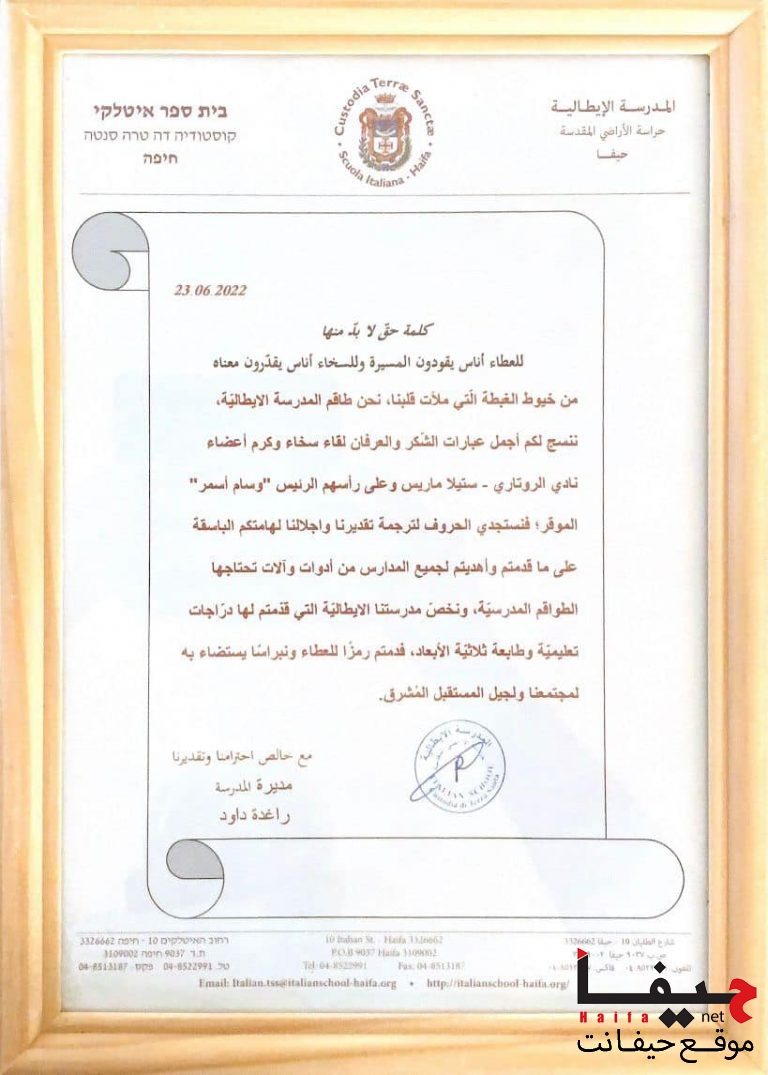 בית ספר איטלקי
קוסטודיה דה טרה סנטה
חיפה
Custodia Terræ Sanctæ
Scuola Italiana - Haifa
المدرسة الإيطالية
حراسة الأراضي المقدسة
حيفا
23.06.2022
كلمة حقّ لا بدّ منها
للعطاء أناس يقودون المسيرة وللسخاء أناس يقدّرون معناه
من خيوط الغبطة الّتي ملأت قلبنا، نحن طاقم المدرسة الايطاليّة،
ننسج لكم أجمل عبارات الشّكر والعرفان لقاء سخاء وكرم أعضاء
نادي الروتاري - ستيلا ماريس وعلى رأسهم الرئيس "وسام أسمر"
الموقر؛ فنستجدي الحروف لترجمة تقديرنا واجلالنا لهامتكم الباسقة
على ما قدمتم وأهديتم لجميع المدارس من أدوات وآلات تحتاجها
الطواقم المدرسيّة، ونخصّ مدرستنا الايطاليّة التي قدّمتم لها درّاجات
تعليميّة وطابعة ثلاثيّة الأبعاد، فدمتم رمزًا للعطاء ونبراسًا يستضاء به
لمجتمعنا ولجيل المستقبل المُشرق.
مع خالص احترامنا وتقديرنا
مديرة المدرسة
راغدة داود
المدرسة الايطالية
ITALIAN SCHOOL
Custodia di Terra Santa
רחוב האיטלקים 10 - חיפה 3326662
ת.ד 9037 חיפה 3109002
טל. 04-8522991 פקס. 04-8513187
10 Italian St. - Haifa 3326662
P.O.B 9037 Haifa 3109002
Tel: 04-8522991 Fax: 04-8513187
شارع الطليان 10 - حيفا 3326662
ص.ب ٩٠٣٧ حيفا
Email: Italian.tss@italianschool-haifa.org • http://italianschool-haifa.org/
حيفا
Haifa net
موقع حيفانت